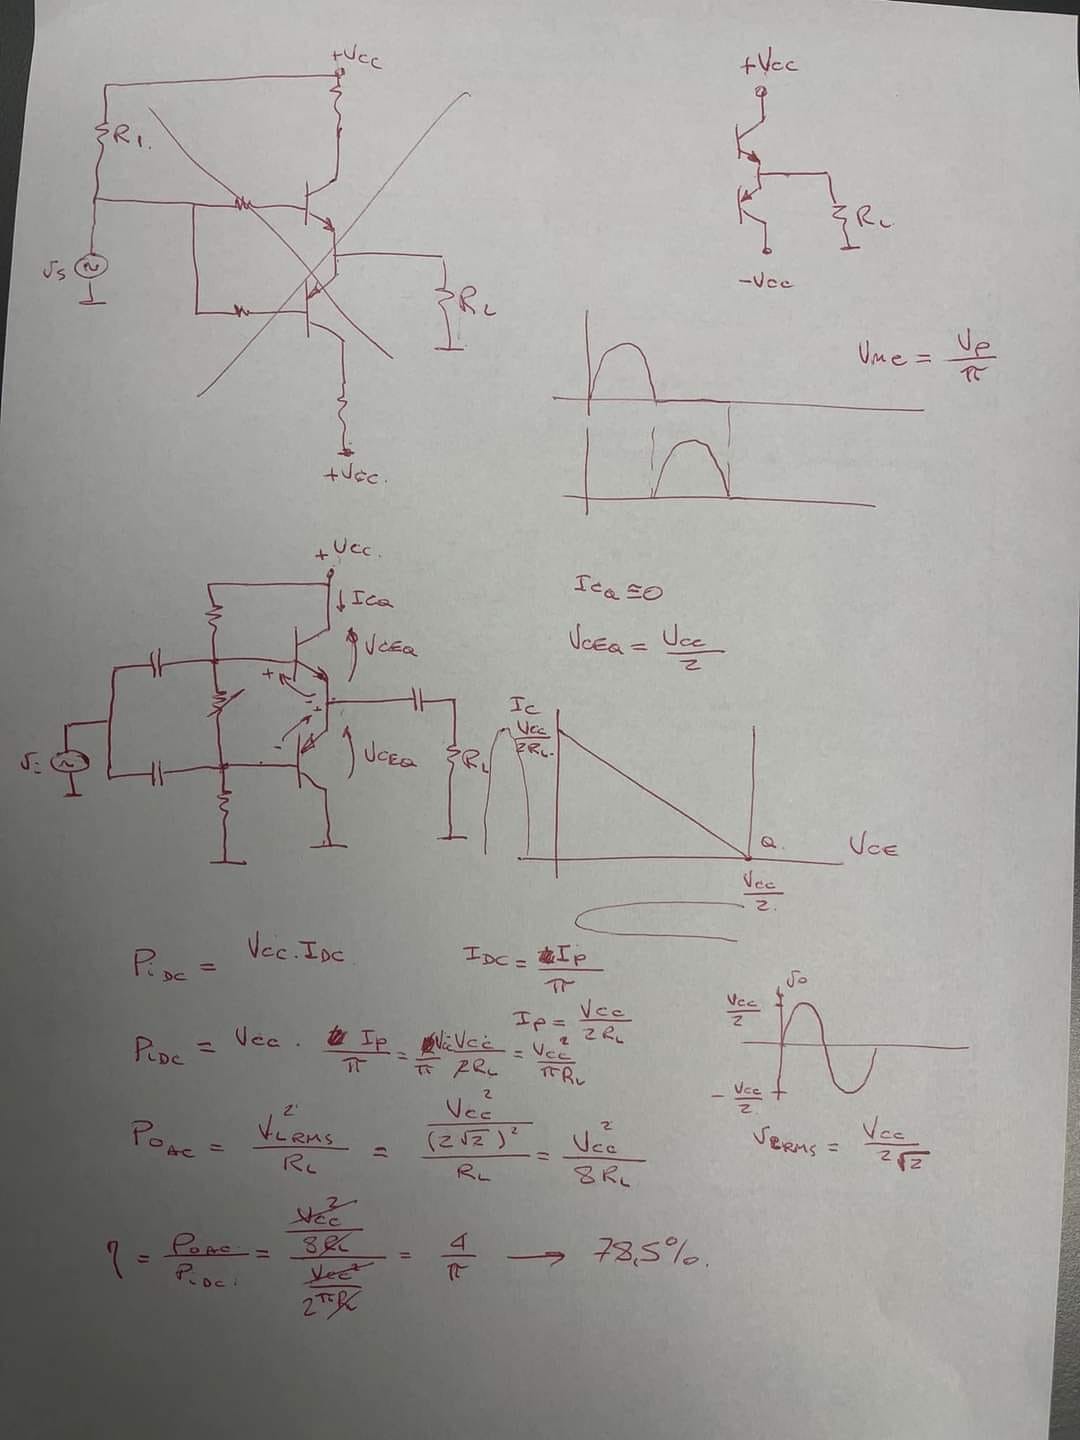 +Vcc
R1.
vs
RL
+Vcc.
+Vcc
RL
-Vcc
Vme = Vp/π
+Vcc.
↓ ICQ
VCEQ
+
-
+
-
VCEQ
RL
ICQ ≅ 0
VCEQ = Vcc/2
Ic
Vcc/2RL.
Q.
VCE
Vcc/2.
PiDC = Vcc.IDC
IDC = Ip/π
Ip = Vcc/2RL
PiDC = Vcc . Ip/π = VccVcc/π 2RL = Vcc²/πRL
vo
Vcc/2
- Vcc/2.
POAC = VLRMS²/RL = Vcc²/(2√2)²/RL = Vcc²/8RL
RMS = Vcc/2√2
η = POAC/PiDC. = Vcc²/8RL/Vcc²/2πRL = 4/π → 78,5%.